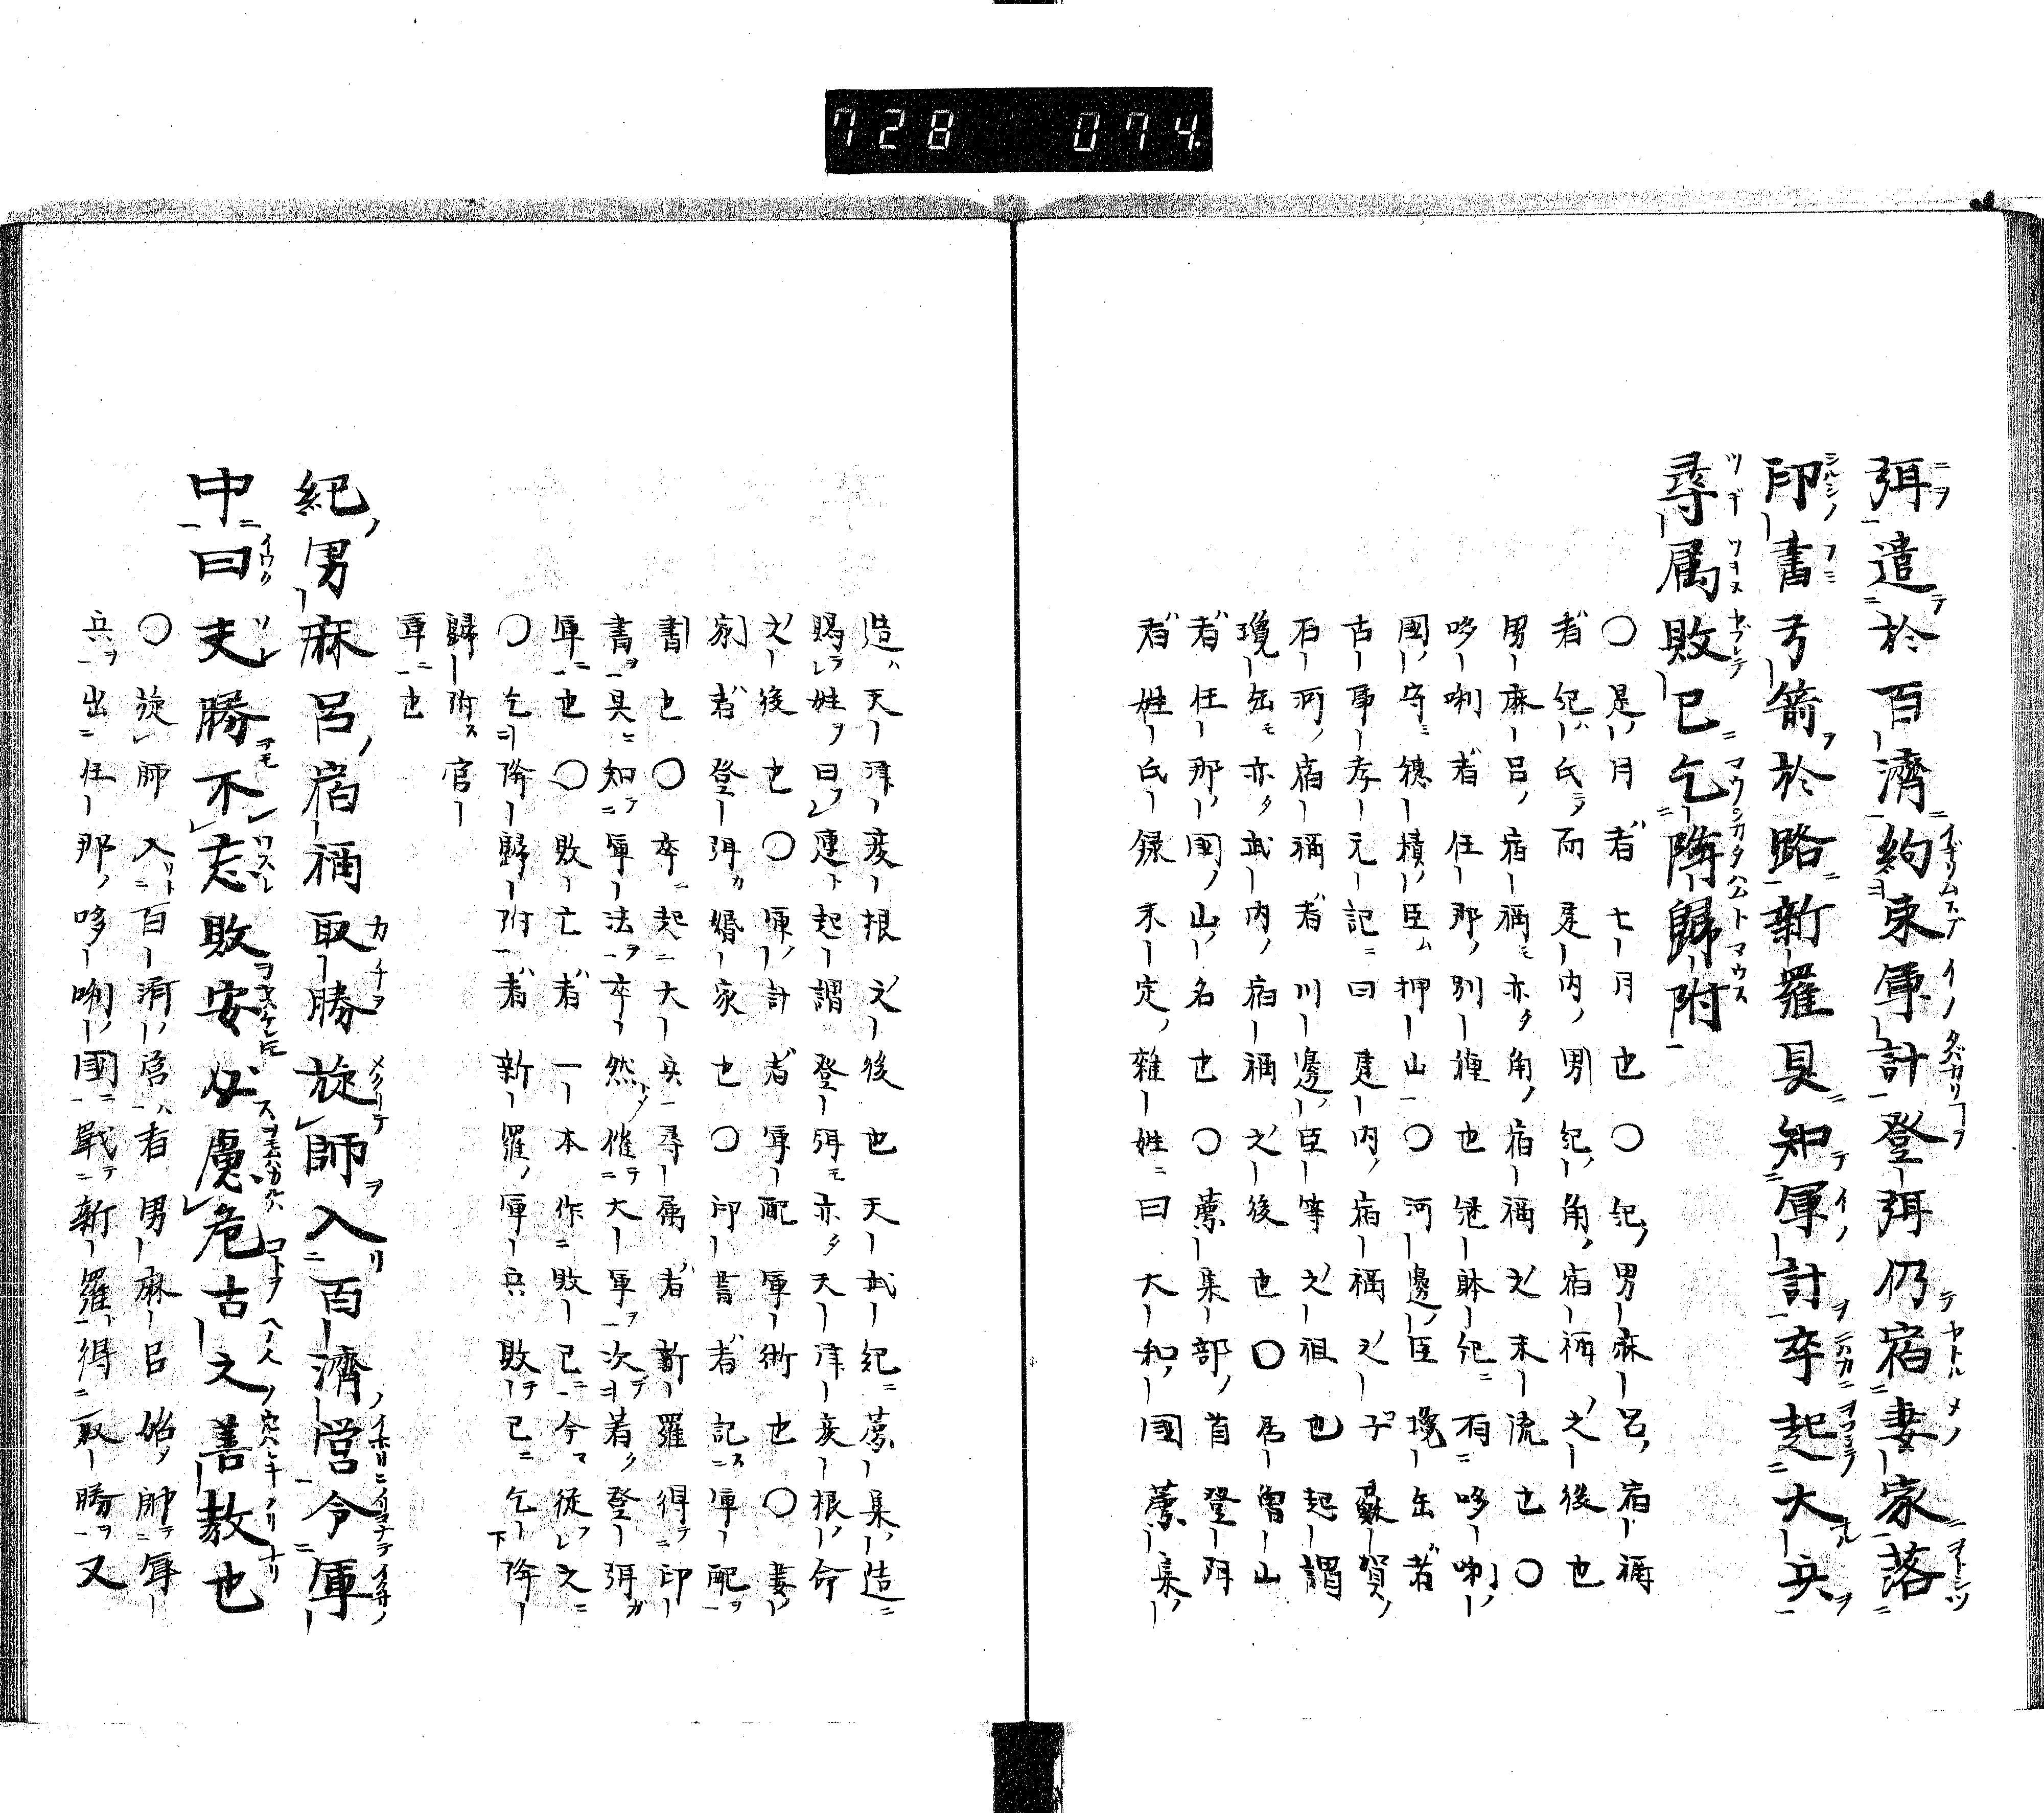 728 074
弭遣於百濟約束軍計登弭仍宿妻家落
印書弓箭於路新羅具知軍計卒起大兵
尋属敗已乞降歸附
○是月者七月也○紀男麻呂宿祢
者紀氏而建内男紀角宿祢之後也
男麻呂宿祢亦角宿祢之末流也○
哆唎者任那別種也継躰紀有哆唎
國守穂積臣押山○河邊臣瓊缶者
古事孝元記曰建内宿祢之子蘇賀
石河宿祢者川邊臣等之祖也起謂
瓊缶亦武内宿祢之後也○居曽山
者任那國山名也○薦集部首登弭
者姓氏録末定雜姓曰大和國薦集
造天津彦根之後也天武紀薦集造
賜姓曰連起謂登弭亦天津彦根命
之後也○軍計者軍配軍術也○妻
家者登弭婚家也○印書者記軍配
書也○卒起大兵尋属者新羅得印
書具知軍法卒然催大軍次着登弭
軍也○敗亡者一本作敗已今從之
○乞降歸附者新羅軍兵敗已乞降
歸附官
軍也
紀男麻呂宿祢取勝旋師入百濟営令軍
中曰夫勝不忘敗安必慮危古之善教也
○旋師入百濟営者男麻呂始帥軍
兵出任那哆唎國戰新羅得取勝又